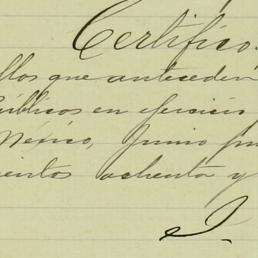 Certifico:
llos que anteceden
úblicos en ejercicio
México, Junio
ientos ochenta y